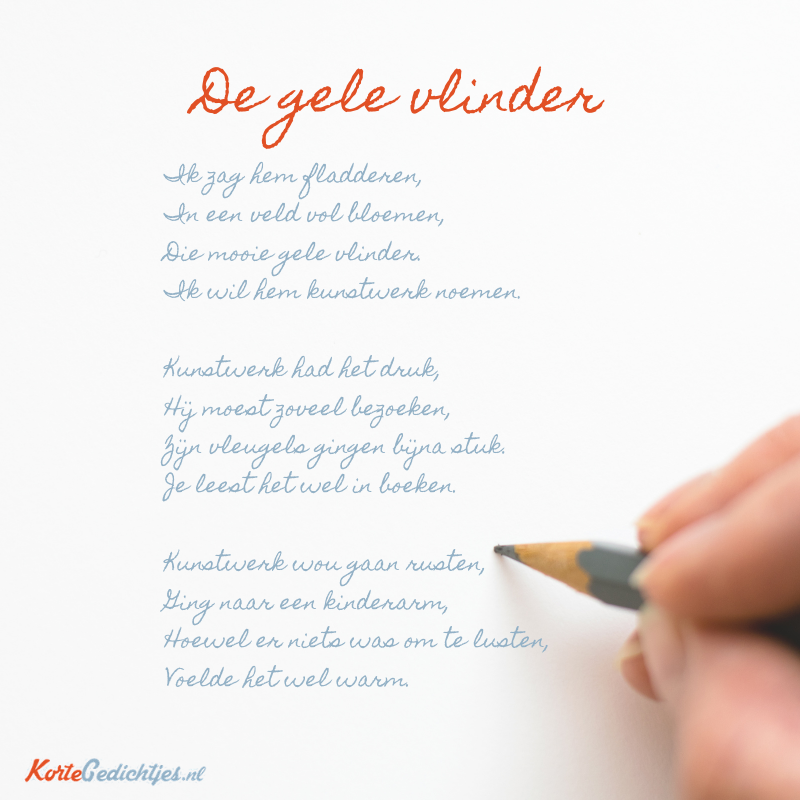 De gele vlinder
Ik zag hem fladderen,
In een veld vol bloemen,
Die mooie gele vlinder.
Ik wil hem kunstwerk noemen.
Kunstwerk had het druk,
Hij moest zoveel bezoeken,
Zijn vleugels gingen bijna stuk.
Je leest het wel in boeken.
Kunstwerk wou gaan rusten,
Ging naar een kinderarm,
Hoewel er niets was om te lusten,
Voelde het wel warm.
KorteGedichtjes.nl